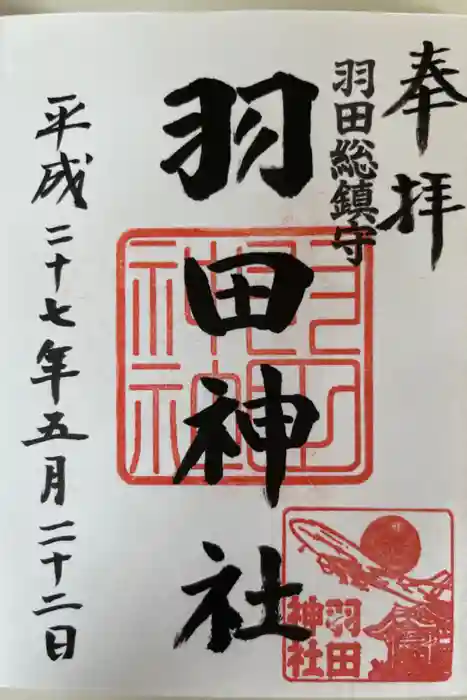 奉拝
羽田総鎮守
羽田神社
平成二十七年五月二十二日
羽田神社
羽田
神社